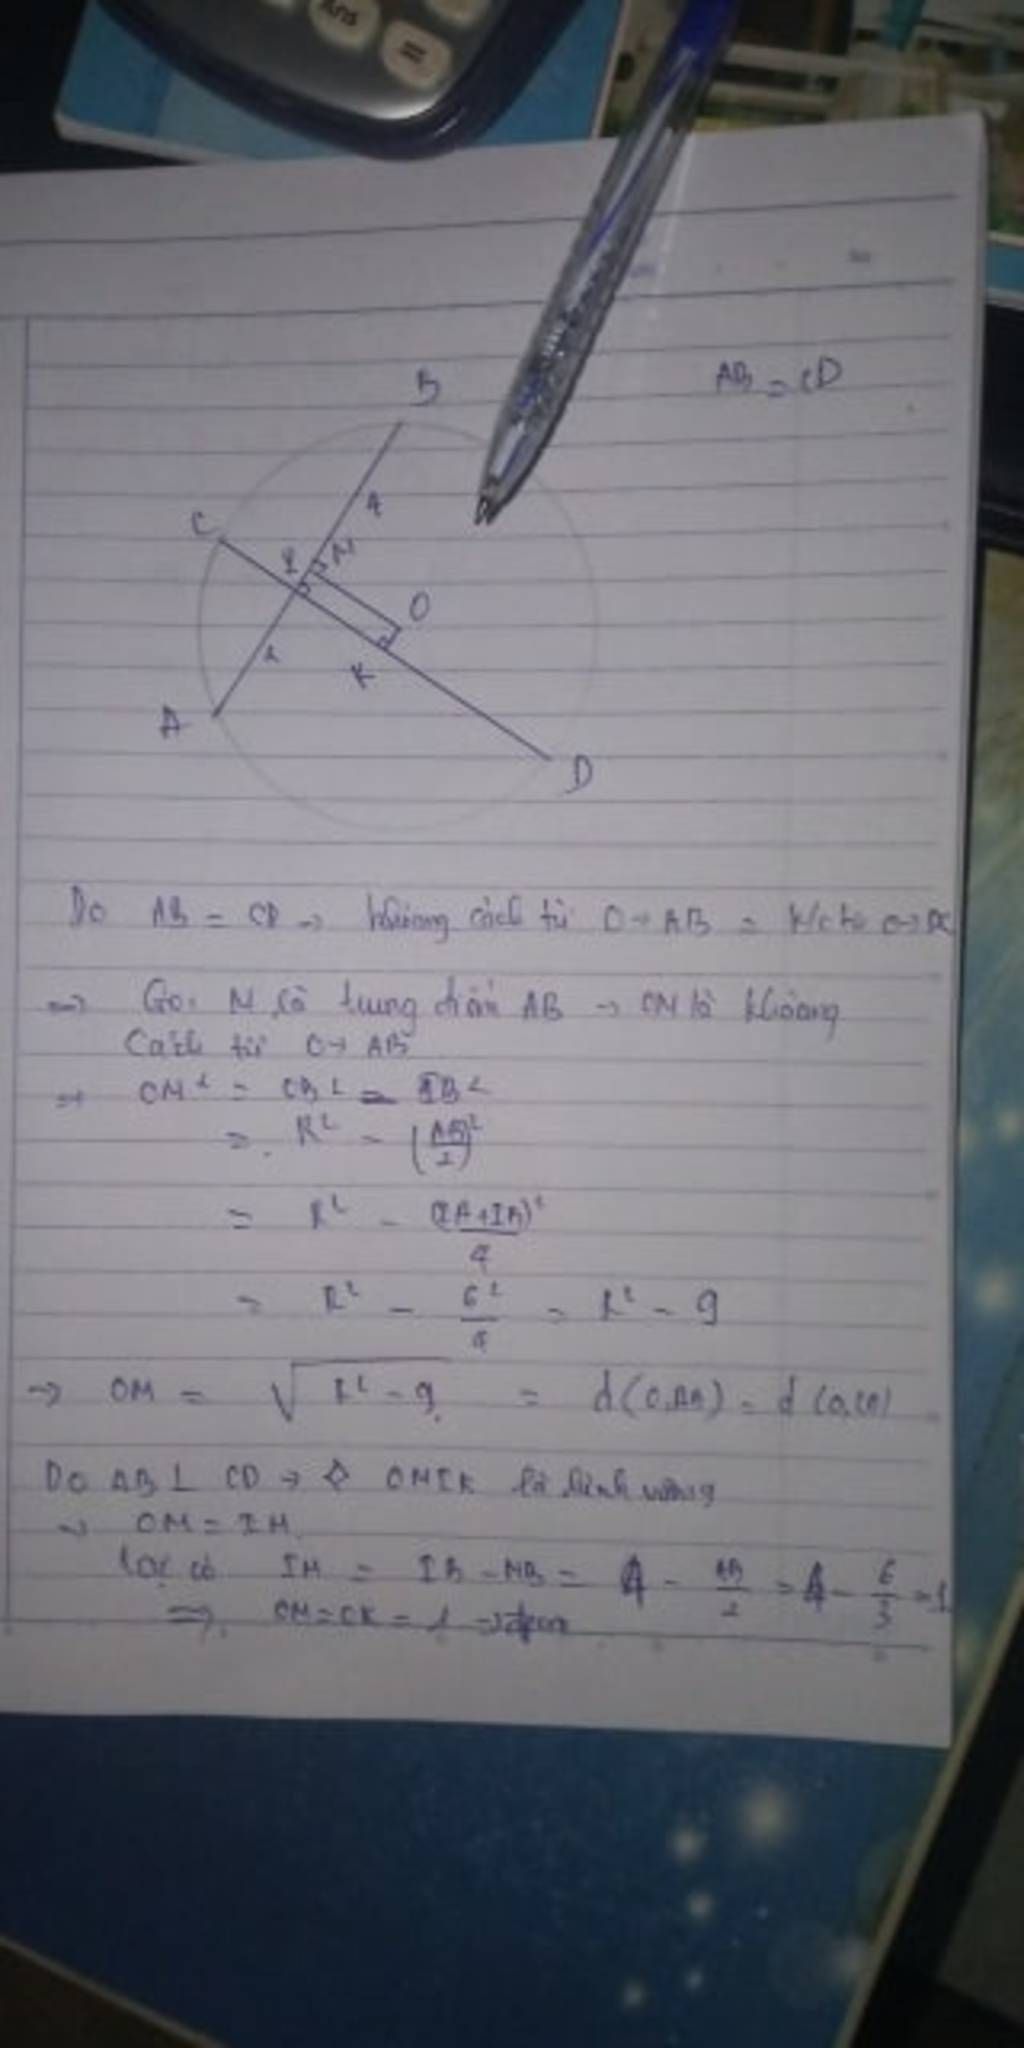 Ans
=
AB = CD
B
4
C
I M
O
2
K
A
D
Do AB = CD → khoảng cách từ O → AB = k/c từ O → DC
⇒ Gọi M là trung điểm AB → OM là khoảng
Cách từ O → AB
⇒ OM² = OB² - IB²
= R² - (AB/2)²
= R² - (IA+IB)²/4
= R² - 6²/4 = R² - 9
→ OM = √(R² - 9) = d(O,AB) = d(O,CD)
Do AB ⊥ CD → ◇ OMIK là hình vuông
→ OM = IM
Lại có IM = IB - MB = 4 - AB/2 = 4 - 6/3 = 1
⇒ OM = OK = 1 → đpcm